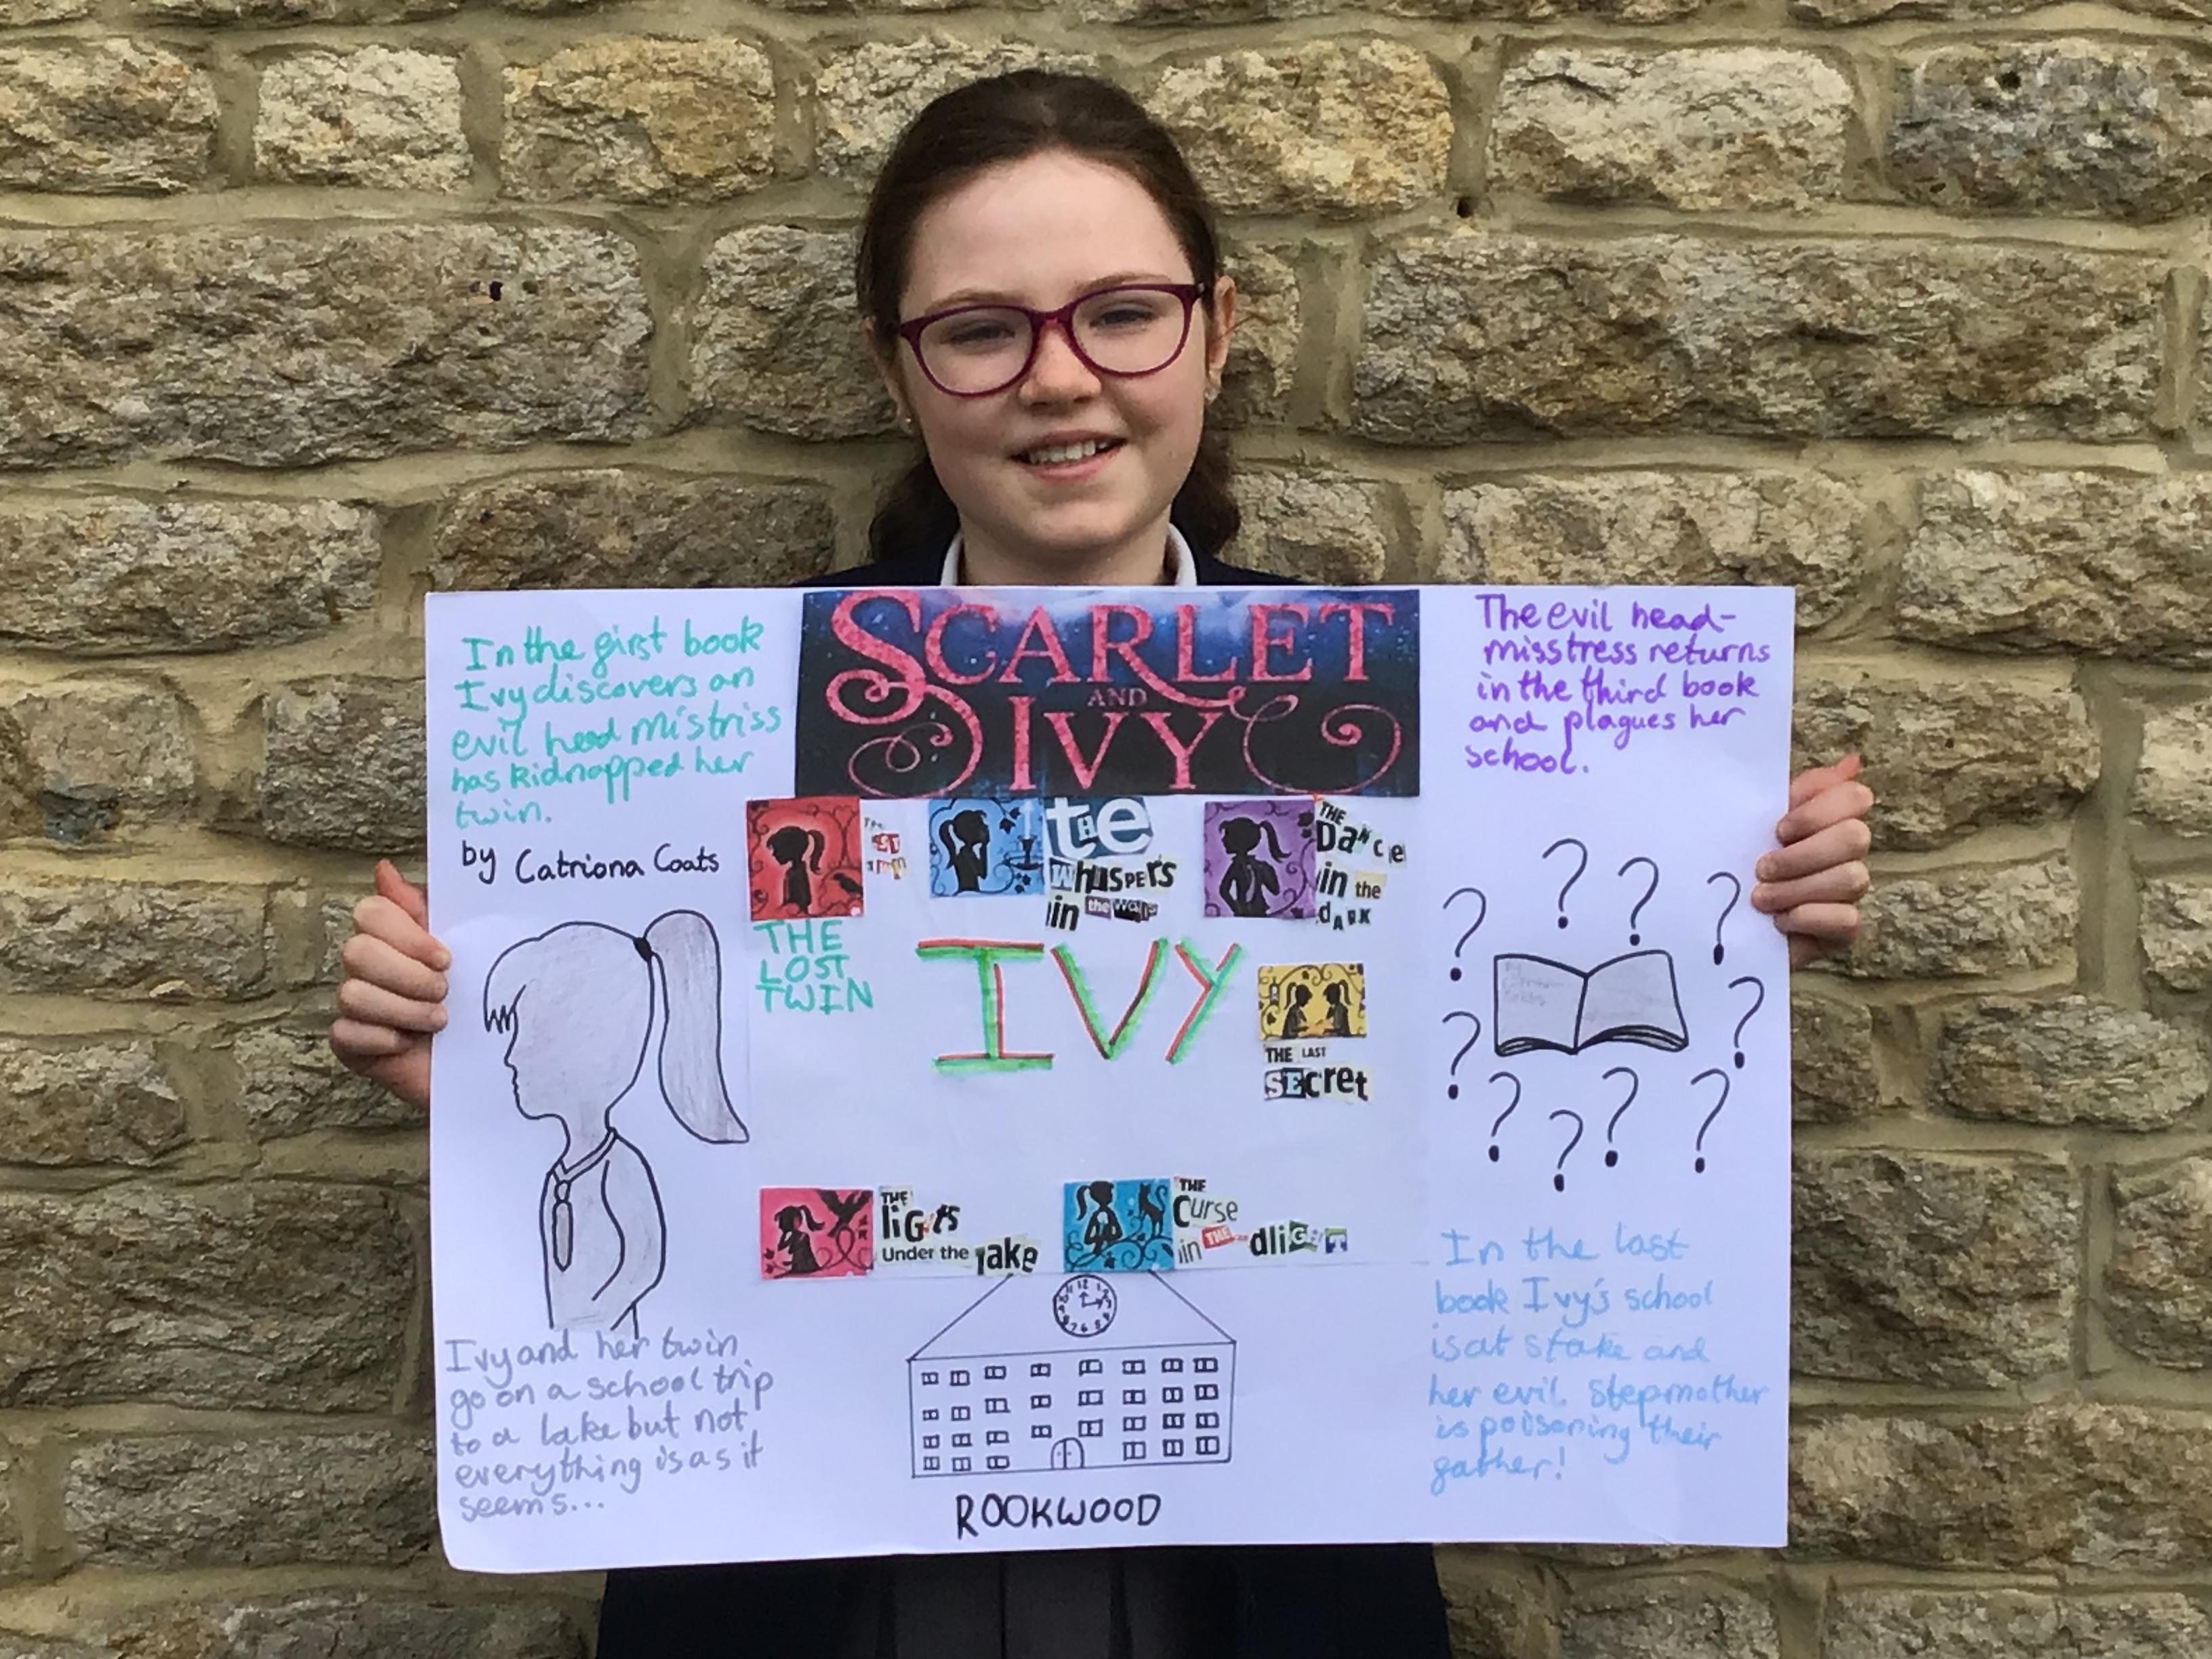 In the first book
Ivy discovers an
evil head mistriss
has kidnapped her
twin.
by Catriona Coats
SCARLET
AND
IVY
The evil head-
misstress returns
in the third book
and plagues her
school.
THE
LOST
TWIN
the
Whispers
in the walls
THE
Dance
in the
dARK
IVY
THE LAST
SEcret
THE
liGhts
Under the lake
THE
Curse
in THE dliGht
12
ROOKWOOD
Ivy and her twin
go on a school trip
to a lake but not
everything is as it
seems...
In the last
book Ivy's school
is at stake and
her evil stepmother
is poisoning their
father!
? ? ? ? ? ? ? ? ? ? ?